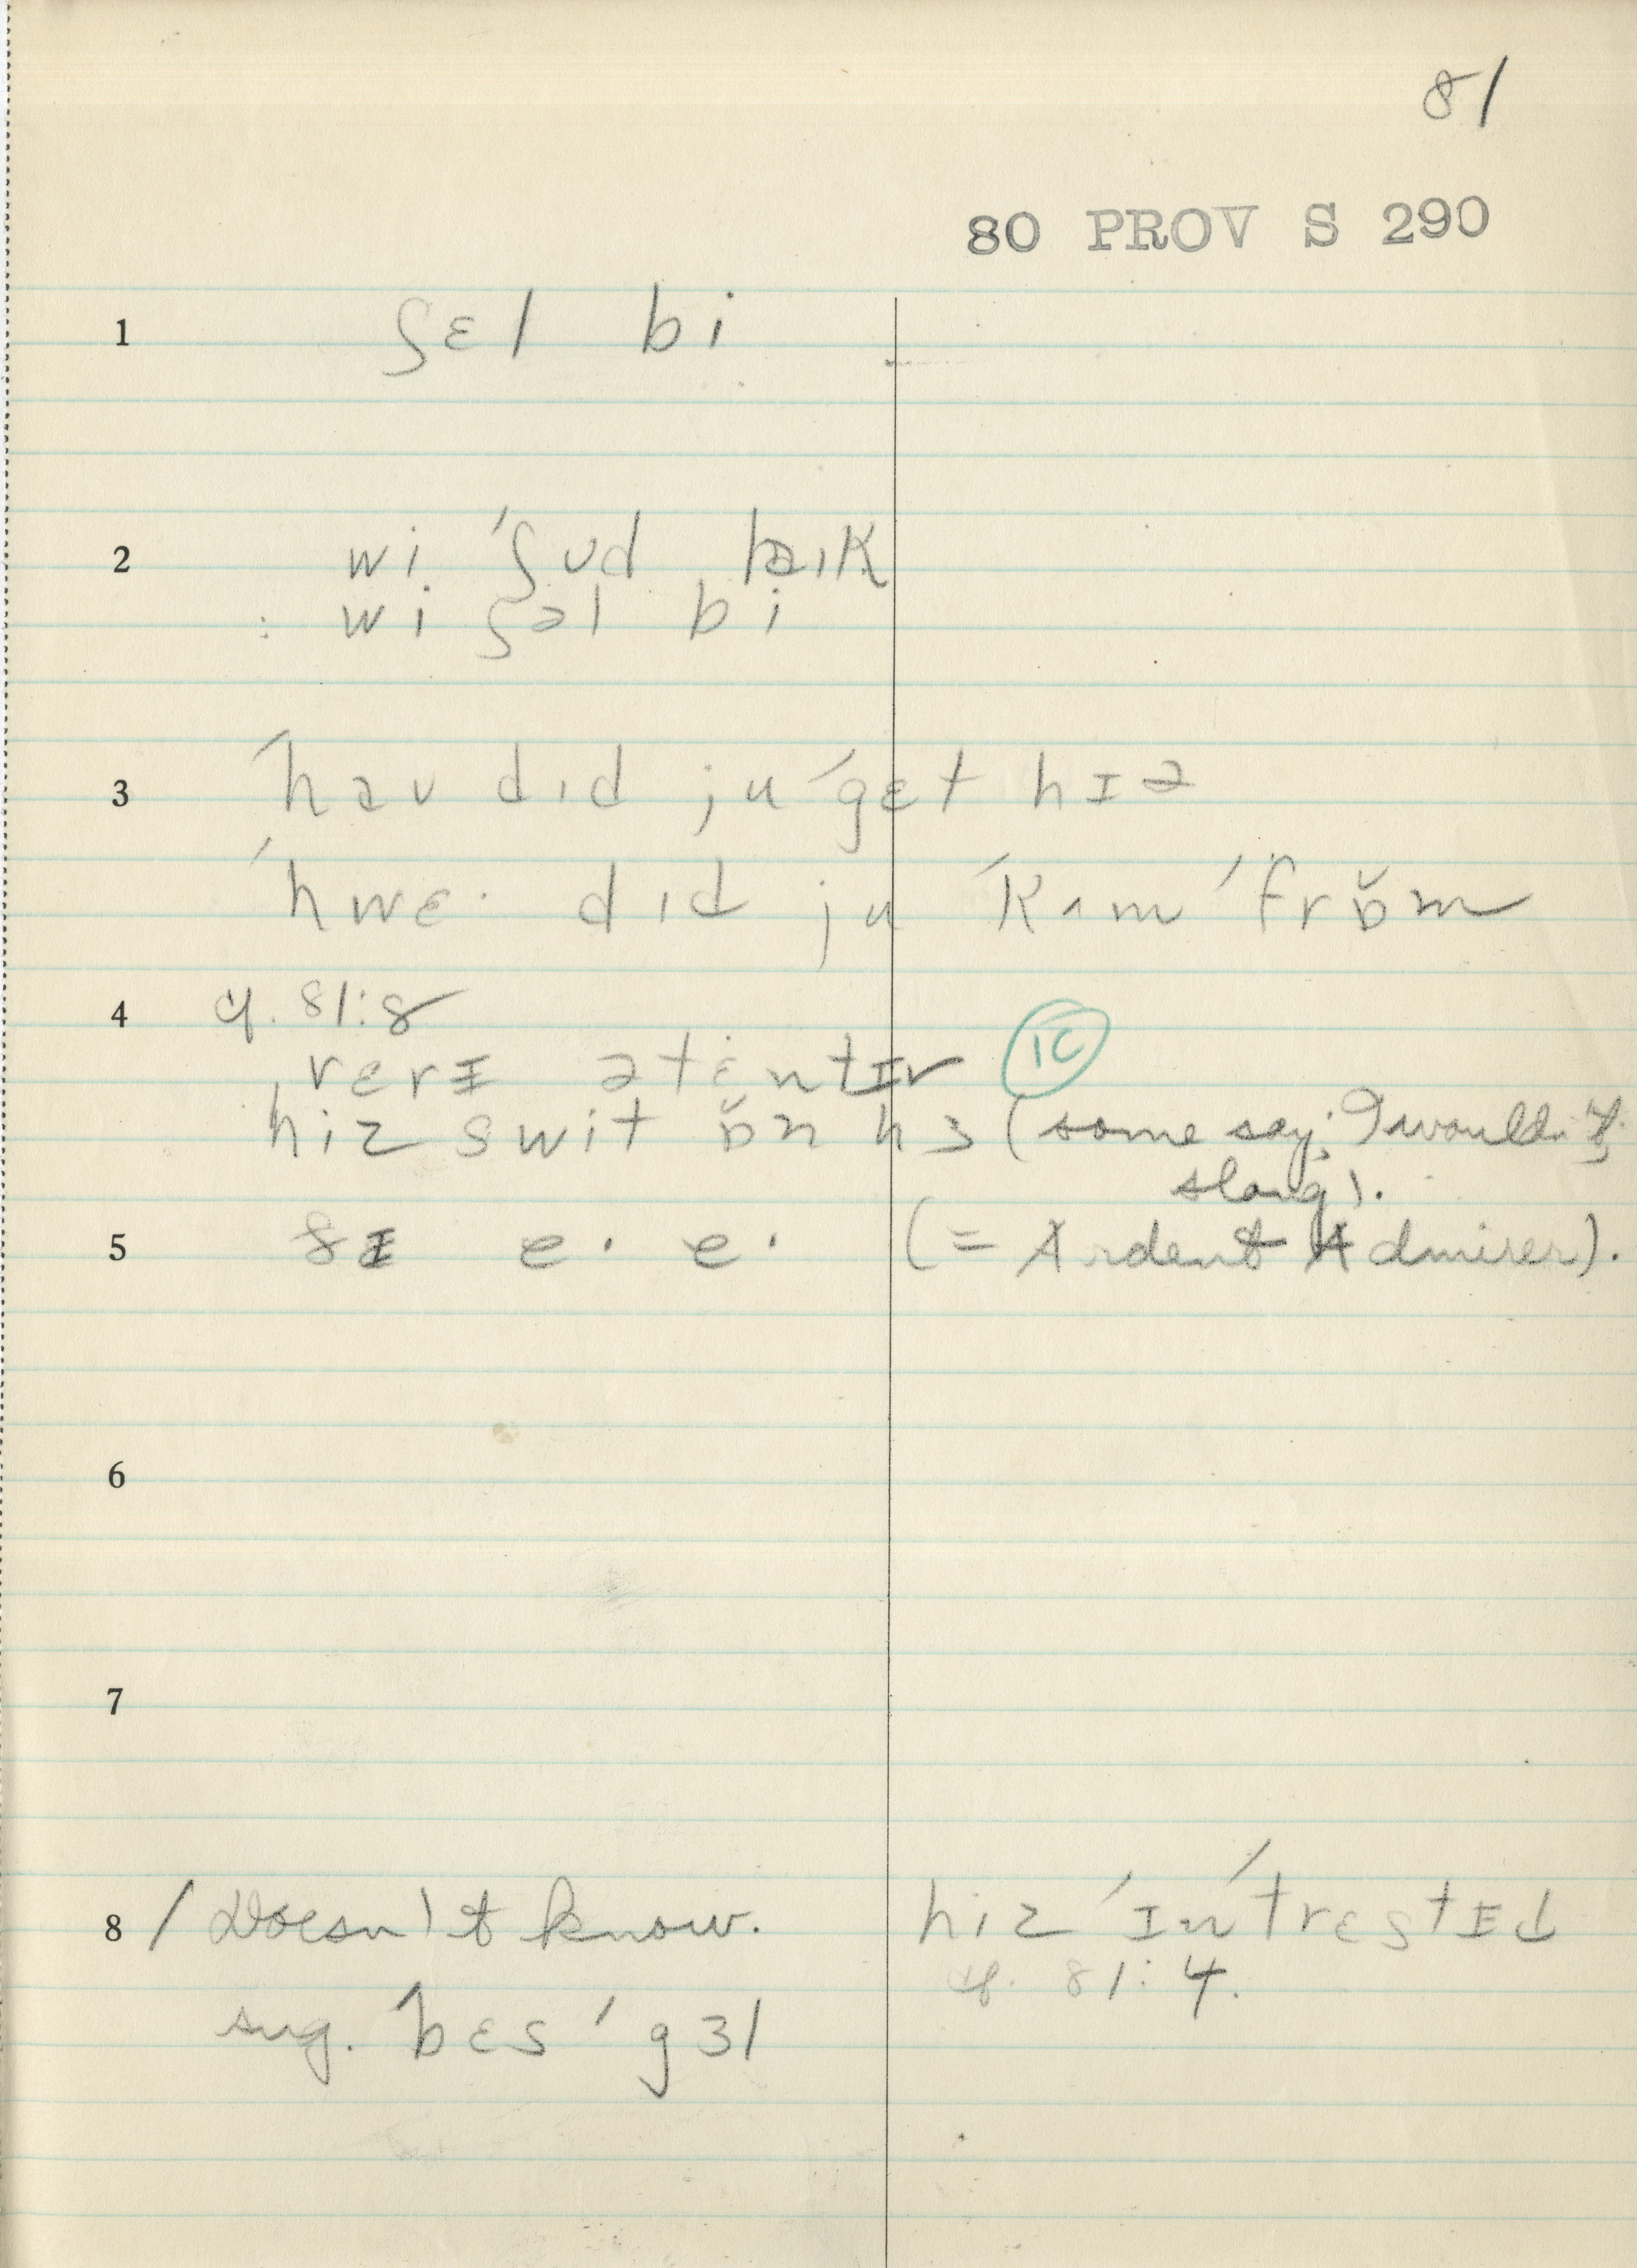 81
80 PROV S 290
1 ʃɛl bi
2 wi ˈʃʊd laɪk
: wi ʃəl bi
3 ˈhaʊ dɪd ju ˈgɛt hɪə
ˈhwɛ· dɪd ju ˈkʌm ˈfrɒ̆m
4 cf. 81:8
vɛrɪ ətɛntɪv IC
hiz swit ɒ̆n hɜ (some say; I wouldn't;
slang).
5 ðɪ e· e· (= Ardent Admirer).
6
7
8 / Doesn't know. hiz ˈɪnˈtrɛstɪd
cf. 81:4.
sug. ˈbɛs ˈgɜl